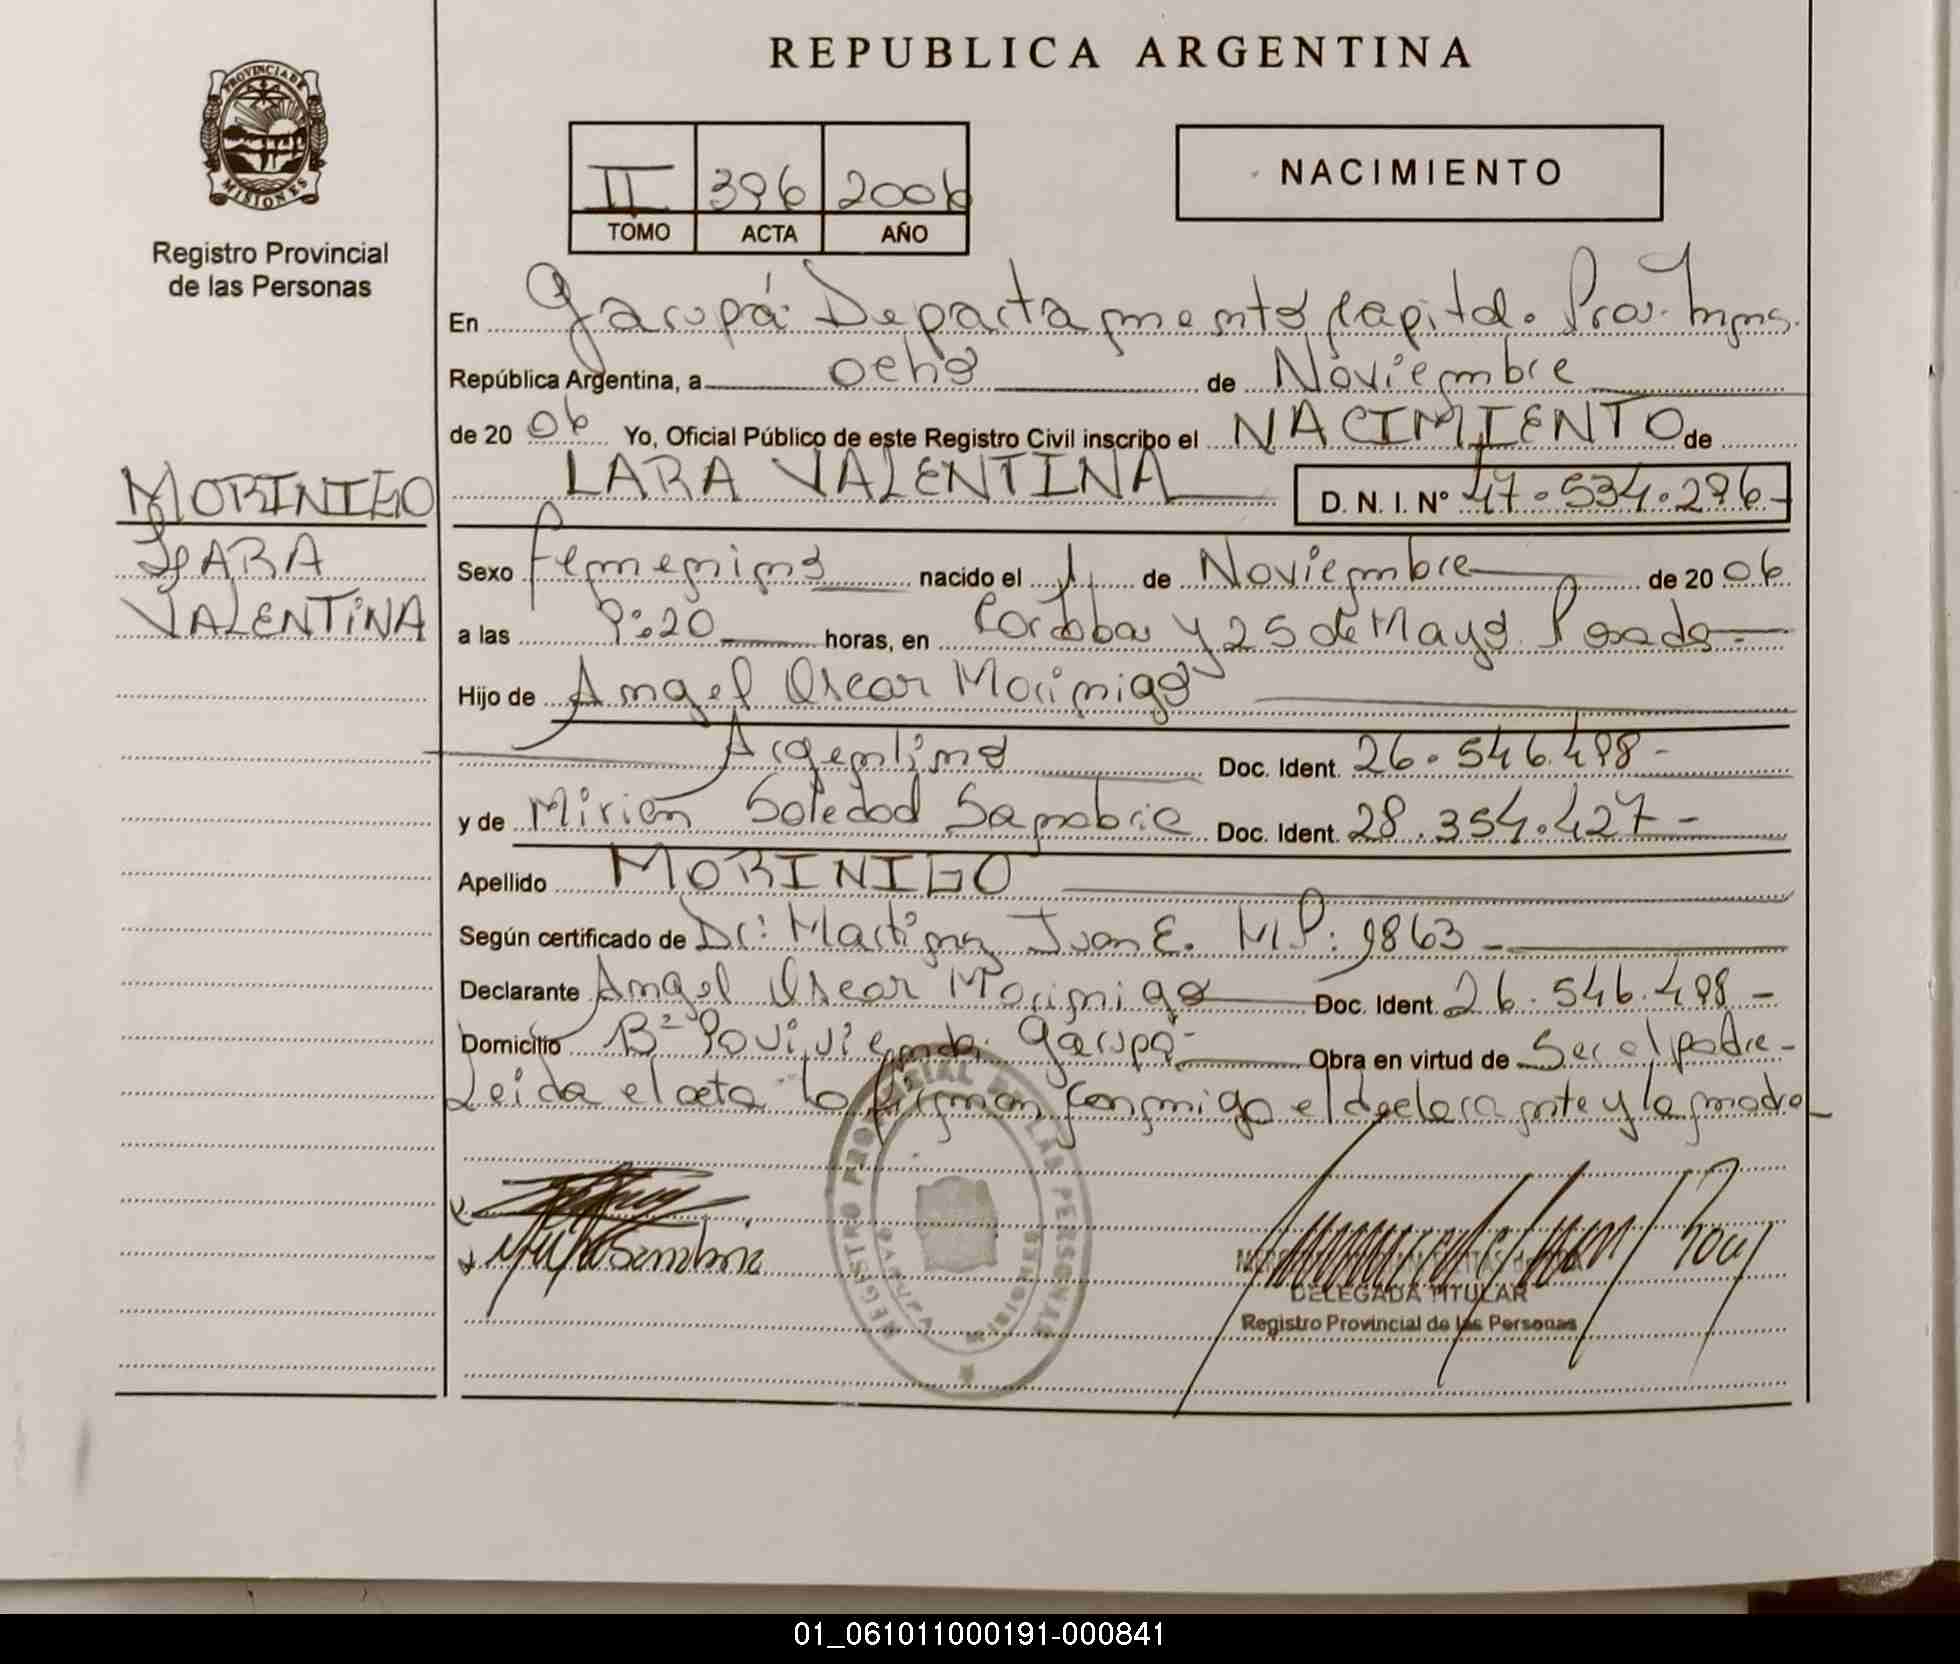 REPUBLICA ARGENTINA
PROVINCIA DE
MISIONES
Registro Provincial
de las Personas
II 396 2006
TOMO ACTA AÑO
NACIMIENTO
En Garupá Departamento Capital. Prov. Mnes.
República Argentina, a ocho de Noviembre
de 20 06 Yo, Oficial Público de este Registro Civil inscribo el NACIMIENTO de
LARA VALENTINA D. N. I. Nº 47.534.296-
MORINIGO
LARA
VALENTINA
Sexo Femenino nacido el 1 de Noviembre de 20 06
a las 9:20 horas, en Cordoba y 25 de Mayo Posadas
Hijo de Angel Oscar Morinigo
Argentino Doc. Ident. 26.546.498-
y de Mirian Soledad Sanabria Doc. Ident. 28.354.427-
Apellido MORINIGO
Según certificado de Dr: Martinez Juan E. M.P: 9863
Declarante Angel Oscar Morinigo Doc. Ident. 26.546.498-
Domicilio Bº Provivienda Garupá- Obra en virtud de Ser el padre-
Leida el acta lo firman conmigo el declarante y la madre
REGISTRO PROVINCIAL DE LAS PERSONAS
GARUPA MISIONES
DELEGADA TITULAR
Registro Provincial de las Personas
01_061011000191-000841